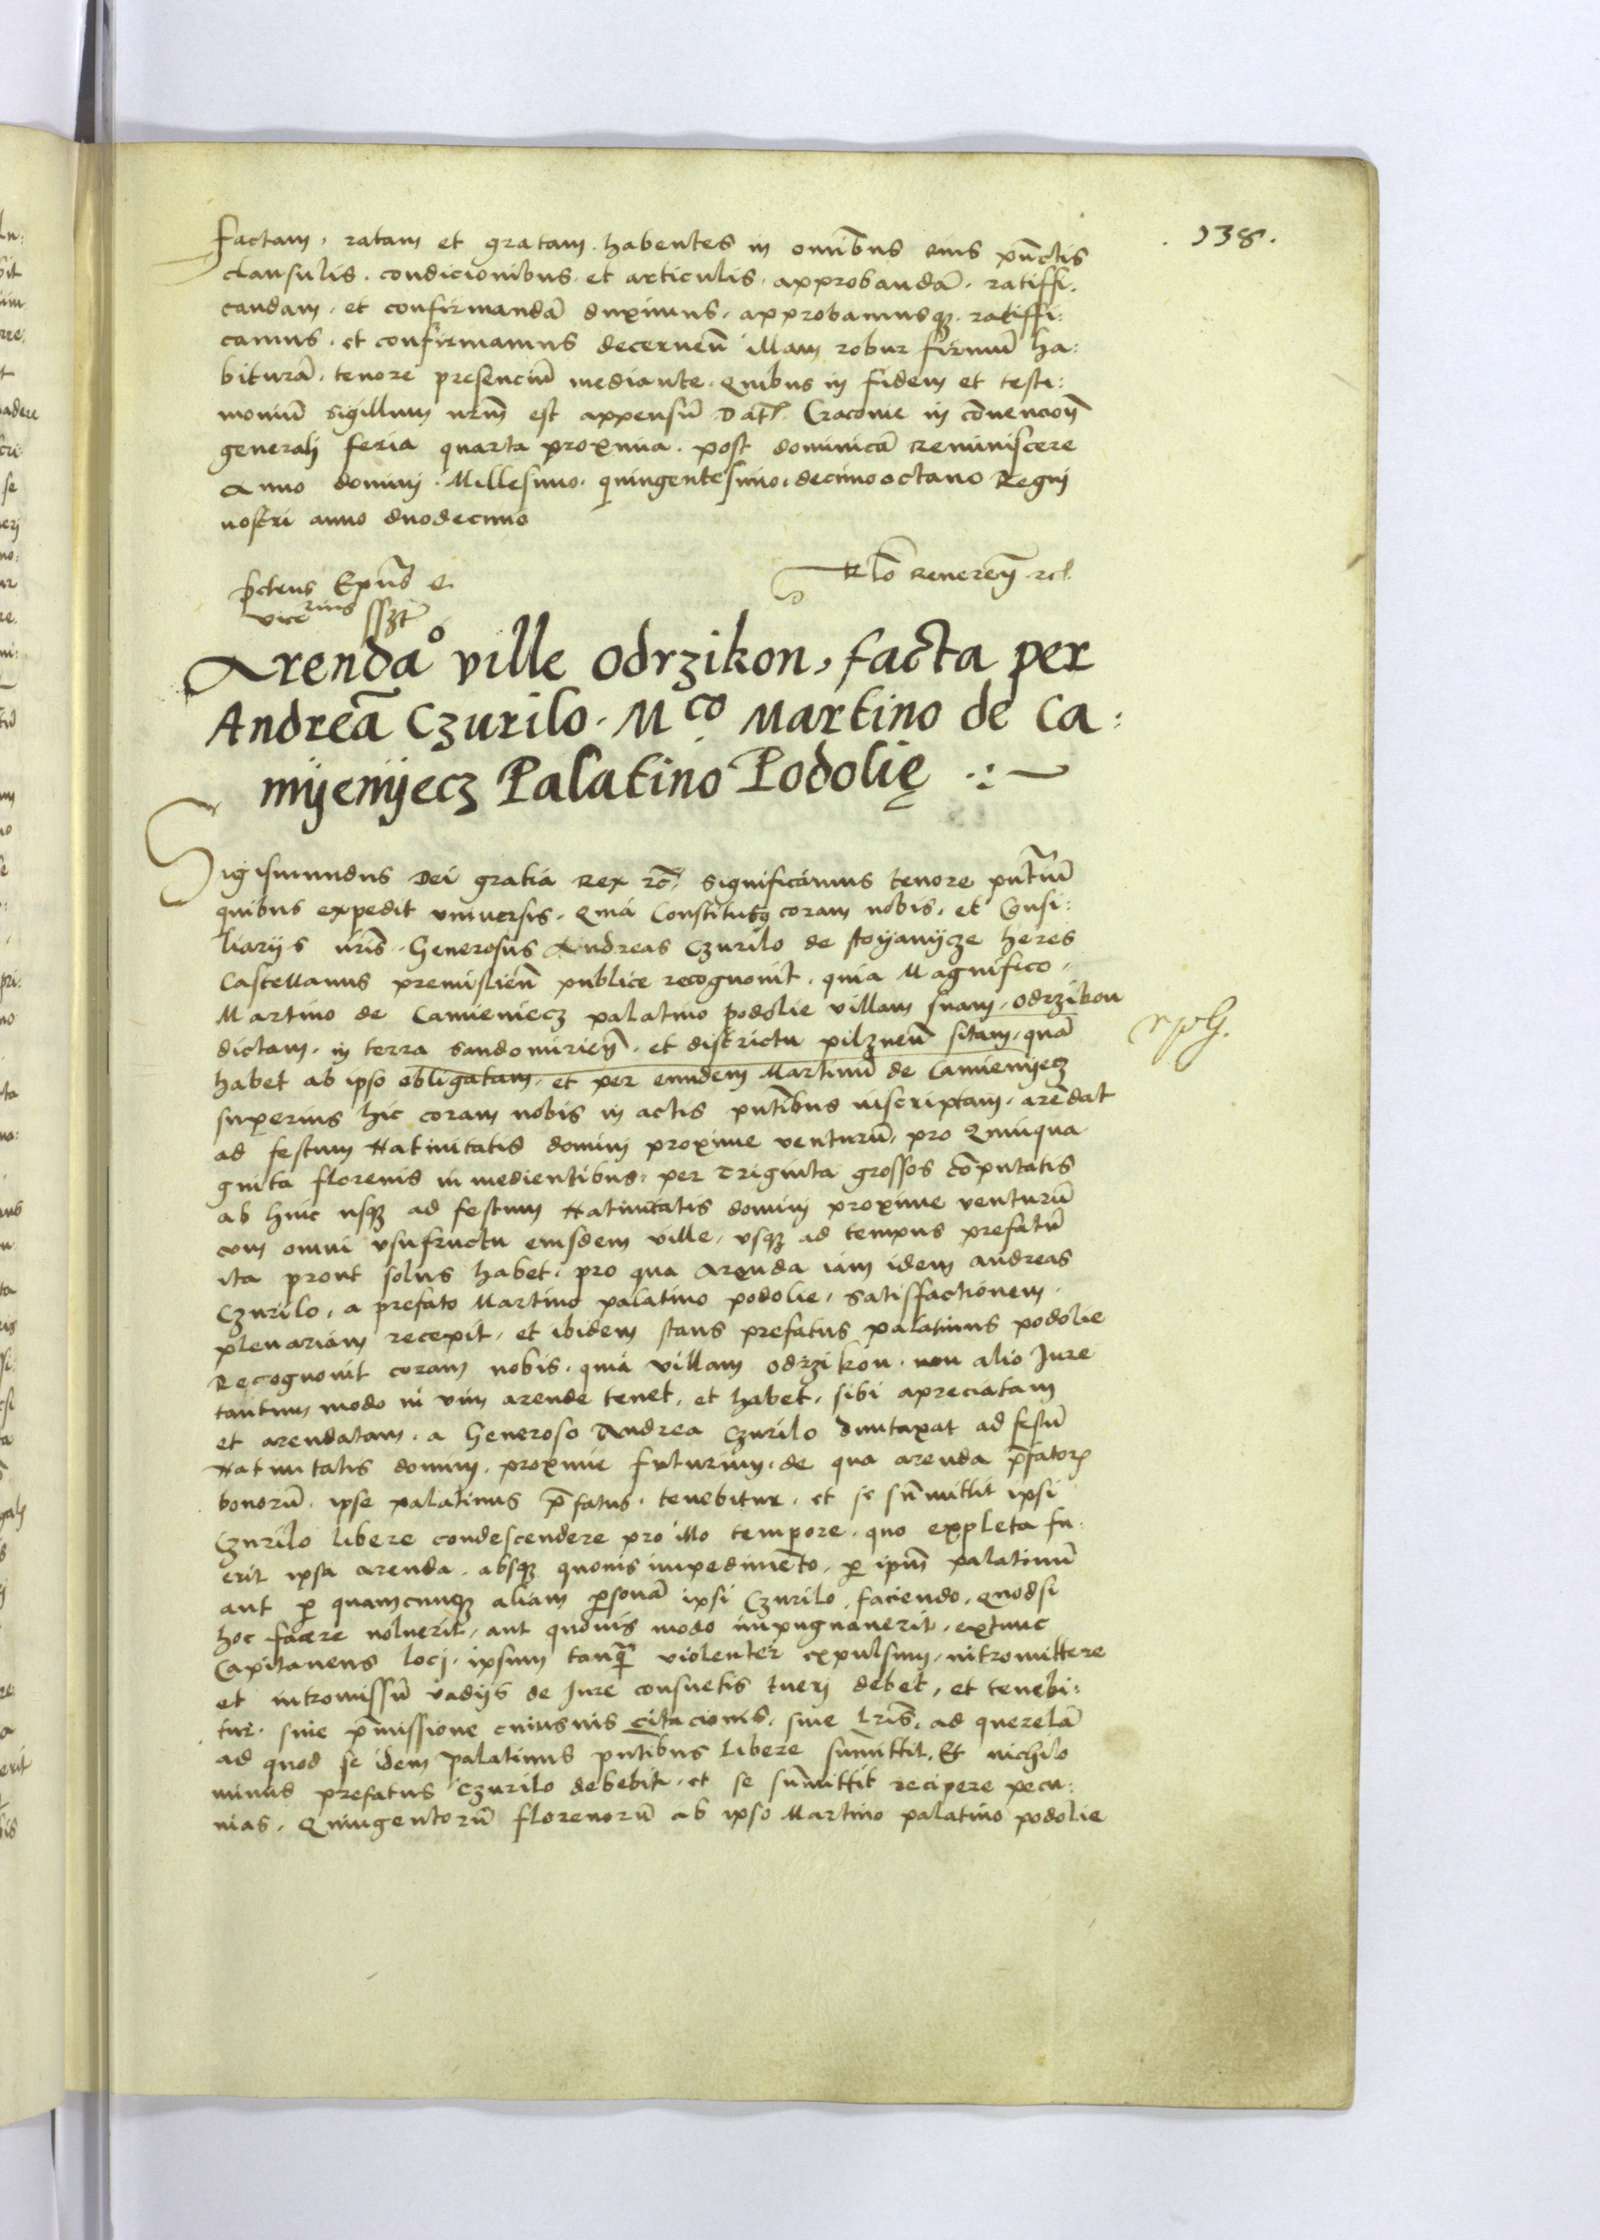 138.
factam, ratam et gratam habentes in omībus eius pūctis
clausulis, condicionibus et articulis, approbandā, ratiffi:
candam, et confirmandā duximus, approbamusqȝ, ratiffi:
camus, et confirmamus decerneñ illam robur firmū ha:
biturā, tenore presenciū mediante, Quibus in fidem et testi:
moniū sigillum nrm̄ est appensū Dat Cracovie in cōvencioñ
generalj feria quarta proxima post dominicā Reminiscere
Anno dominj Millesimo quingentesimo decimooctavo Regnj
nostri anno duodecimo
Rlō Reveren
Epūs
Arenda ville Odrzikon, facta per
Andreā Czurilo, Mco Martino de Ca:
myenyecz Palatino Podolię
Sigismundus Dei gratia Rex rc̄ significamus tenore pn̄tium
quibus expedit universis, Quia Constitutꝫ coram nobis, et Consi:
liarijs nr̄is, Generosus Andreas Czurilo de Stoyanycze heres
Castellanus premislieñ publice recognovit, quia Magnifico
Martino de Camieniecz palatino podolie villam suam, odrzikon
dictam, in terra Sandomirieñ, et districtu pilzneñ sitam, quā
habet ab ipso obligatam, et per eundem Martinū de Camienyecz
superius hic coram nobis in actis pn̄tibus inscriptam, arēdat
ad festum Nativitatis dominj proxime venturū, pro Quinqua
ginta florenis in medientibus, per Triginta grossos cōputatis
ab hinc usqȝ ad festum Nativitatis dominj proxime venturū
cum omni usufructu eiusdem ville, usqȝ ad tempus prefatū
ita prout solus habet, pro qua Arenda iam idem Andreas
Czurilo, a prefato Martino palatino podolie, satisfactionem
plenariam recepit, et ibidem stans prefatus palatinus podolie
Recognovit coram nobis, quia villam odrzikon, non alio Iure
tantum modo in vim arende tenet, et habet, sibi apreciatam
et arendatam, a Generoso Andrea Czurilo duntaxat ad festū
Nativitatis dominj, proxime futurum, de qua arenda p̄fatorꝫ
bonorū, ipse palatinus p̄fatus, tenebitur, et se sūmittit ipsi
Czurilo libere condescendere pro illo tempore, quo expleta fu:
erit ipsa arenda, absqȝ quovis impedimēto, p ipm̄ palatinū
aut p quamcunqȝ aliam psonā ipsi Czurilo, faciendo, Quodsi
hoc facere noluerit, aut quovis modo impugnaverit, extunc
Capitaneus locj, ipsum tanqꝫ violenter expulsum, intromittere
et intromissū vadijs de Iure consuetis tuerj debet, et tenebi:
tur, sine p̄missione cuiusvis citacionis, sive lr̄is, ad querelā
ad quod se idem palatinus pn̄tibus libere sūmittit, Et nichilo
minus prefatus Czurilo debebit, et se sūmittit recipere pecu:
nias, Quingentorū florenorū ab ipso Martino palatino podolie